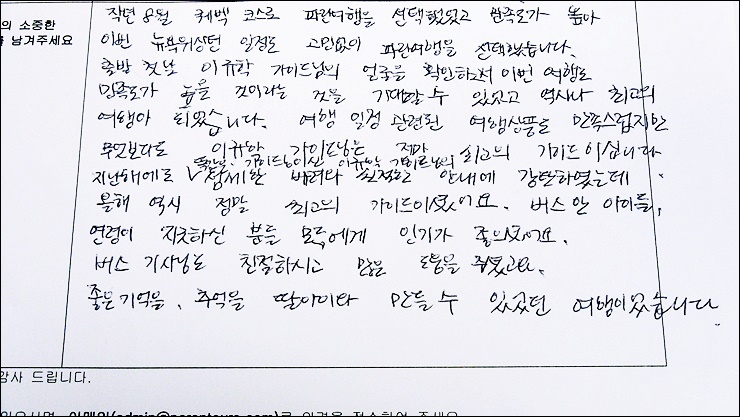 작년 8월 퀘벡 코스로 파란여행을 선택했었고 만족도가 높아
의 소중한
남겨주세요
이번 뉴욕워싱턴 일정도 고민없이 파란여행을 선택했습니다.
출발 첫날 이규학 가이드님의 얼굴을 확인하고서 이번 여행도
만족도가 높을 것이라는 것을 기대할 수 있었고 역시나 최고의
여행이 되었습니다. 여행 일정 관련된 여행상품도 만족스럽지만
무엇보다도 이규학 가이드님은 정말 최고의 가이드이십니다
가이드님이신 이규학 가이드님의
지난해에도 상세한 배려와 친절한 안내에 감탄하였는데
올해 역시 정말 최고의 가이드이셨어요. 버스 안 아이들,
연령이 지긋하신 분들 모두에게 인기가 좋으셨어요.
버스 기사님도 친절하시고 많은 도움을 주셨고요.
좋은 기억을, 추억을 딸아이와 만들 수 있었던 여행이었습니다
감사 드립니다.